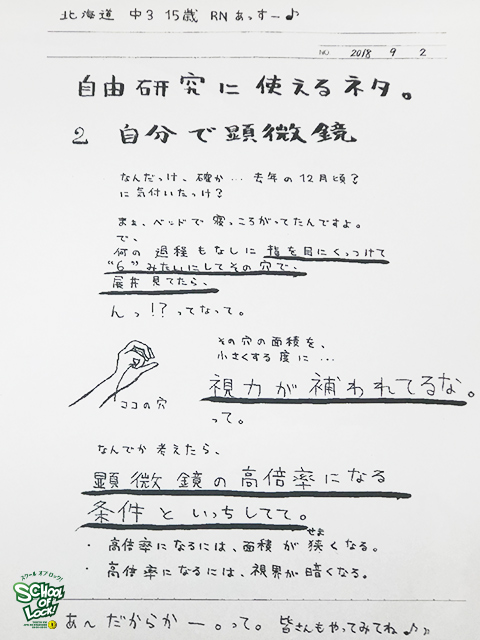 北海道 中3 15歳 RN あっすー♪
NO. 2018 9 2
自由研究に使えるネタ。
2 自分で顕微鏡
なんだっけ、確か… 去年の12月頃?
に気付いたっけ?
まぁ、ベッドで寝っころがってたんですよ。
で、
何の過程もなしに指を目にくっつけて
"6"みたいにしてその穴で、
天井見てたら、
んっ!?ってなって。
その穴の面積を、
小さくする度に…
ココの穴
視力が補われてるな。
って。
なんでか考えたら、
顕微鏡の高倍率になる
条件といっちしてて。
・高倍率になるには、面積が狭くなる。
せま
・高倍率になるには、視界が暗くなる。
スクールオブロック!
SCHOOL OF LOCK!
あ〜だからかー。って。皆さんもやってみてね♪♪